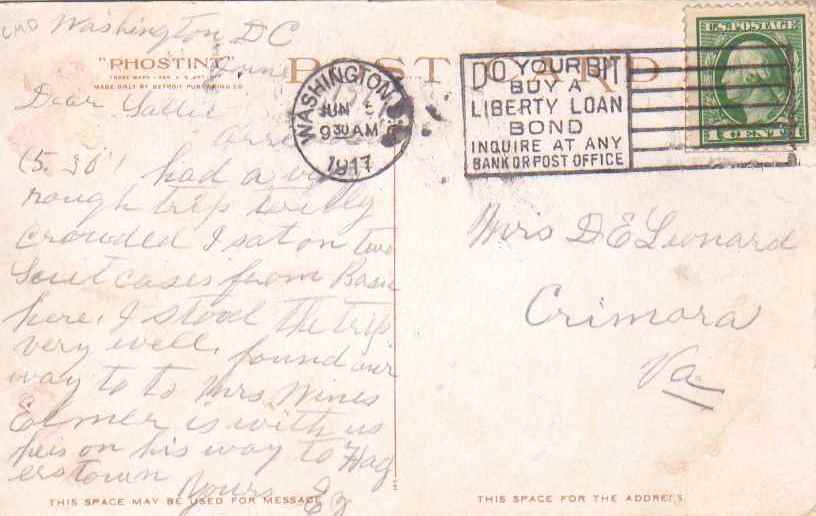 Washington DC
"PHOSTINT"
POST CARD
MADE ONLY BY DETROIT PUBLISHING CO
June
Dear Sallie
(5.30) had a
rough trip
crowded I sat on two
Suit cases from Basic
here. I stood the trip
very well. found our
way to to Mrs Wines
Elmer is with us
heis on his way to Hag
erstown
Yours
THIS SPACE MAY BE USED FOR MESSAGE
WASHINGTON, D.C.
JUN 5
9 30 AM
1917
DO YOUR BIT
BUY A
LIBERTY LOAN
BOND
INQUIRE AT ANY
BANK OR POST OFFICE
U.S. POSTAGE
1 CENT 1
Mrs D E Leonard
Crimora
Va
THIS SPACE FOR THE ADDRESS